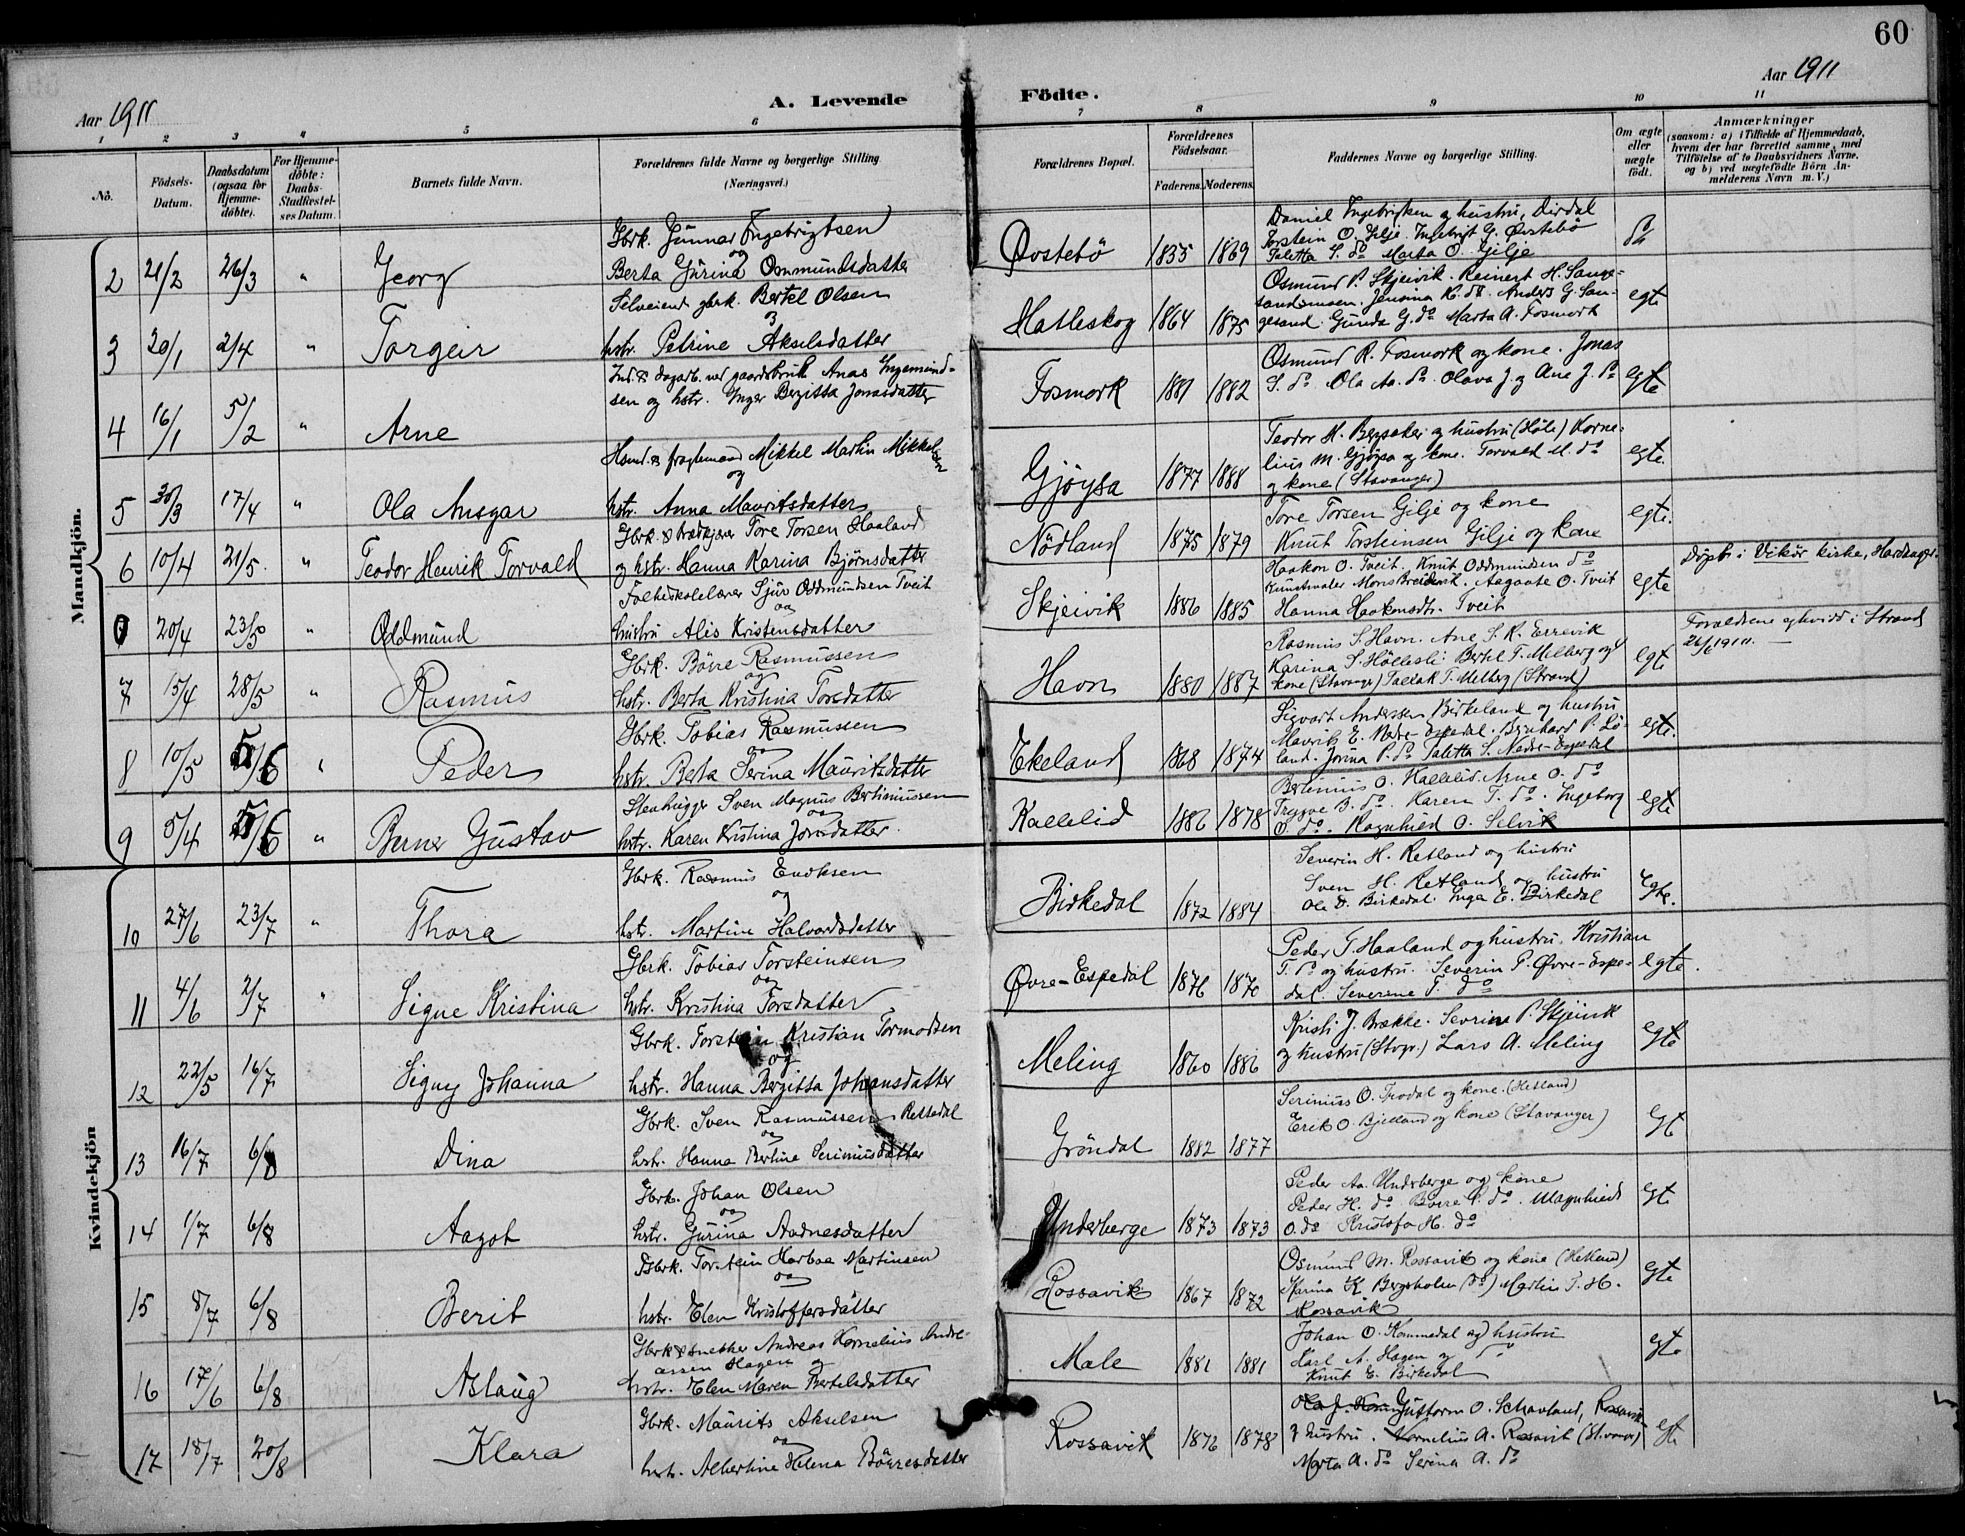 60
Aar 1911
A. Levende Födte.
Aar 1911
1 2 3 4 5 6 7 8 9 10 11
No.
Födsels-Datum.
Daabsdatum (ogsaa for Hjemme-døbte).
For Hjemme-døbte: Daabs-Stadfæstel-ses Datum.
Barnets fulde Navn.
Forældrenes fulde Navne og borgerlige Stilling
(Næringsvei.)
Forældrenes Bopæl.
Forældrenes Födselsaar.
Faderens. Moderens.
Faddernes Navne og borgerlige Stilling.
Om ægte eller uægte født.
Anmærkninger
(saasom: a) i Tilfælde af Hjemmedaab,
hvem der har forrettet samme, med
Tilföielse af to Daabsvidners Navne.
og b) ved uægtefödte Börn An-
melderens Navn m. V.)
Mandkjön.
2 21/2 26/3 " Georg
Gbrk. Gunnar Ingebrigtsen
og
Berta Gurina Ommundsdatter
Øvstebö 1835 1869
Daniel Ingebrigtsen og hustru, Dirdal
Torstein O. Gilje. Ingebrigt G. Øvstebö
Taletta S. do Marta O. Gilje
3 20/1 2/4 " Torgeir
Selveiend gbrk. Bertel Olsen
og
hstr. Petrine Akselsdatter
Hatleskog 1864 1875
Osmund P. Skjeivik. Reinert H. Sange-
sandsmoen. Jensina K. do. Anders G. San-
gesand. Gunda G. do Marta A. Fosmork
egte
4 16/1 5/2 " Arne
Ind. & dagarb. ved gaardsbruk Anas Ingemund-
sen og hstr. Inger Bergitta Jonasdatter
Fosmork 1881 1882
Osmund R. Fosmork og kone. Jonas
S. do. Ola Aa. do. Olava J. og Ane J. do
egte
5 30/3 17/4 " Ola Ansgar
Hsmd. & fragtemand Mikkel Martin Mikkelsen
og
hstr. Anna Mauritsdatter
Gjöysa 1877 1888
Teodor M. Bergsaker og hustru (Høle) Korne-
lius M. Gjöysa og kone. Torvald M. do
og kone (Stavanger)
egte.
6 10/4 21/5 " Teodor Henrik Torvald
Gbrk. & Tore Torsen Haaland
og hstr. Hanna Karina Bjørnsdatter
Nödland 1875 1879
Tore Torsen Gilje og kone
Knut Torsteinsen Gilje og kone
egte.
20/4 23/5 " Oddmund
Folkeskolelærer Sjur Oddmundsen Tveit
og
hustru Alis Kristensdatter
Skjeivik 1886 1885
Haakon O. Tveit. Knut Oddmundsen do
Kunstmaler Mons Breidvik. Aagaate O. Tveit
Hanna Haakonsdtr. Tveit
egte
Döpt i Vikör kirke, Hardanger.
7 15/4 28/5 " Rasmus
Gbrk. Börre Rasmussen
og
hstr. Berta Kristina Torsdatter
Havn 1880 1887
Rasmus S. Havn. Ane S. K. Errevik
Karina S. Höllesli. Bertel T. Melberg og
kone (Stavanger) Tallak T. Melberg (Strand)
egte
Forældrene egtevidd i Strand
1911.
8 10/5 5/6 " Peder
Gbrk. Tobias Rasmussen
og
hstr. Berta Serina Mauritsdatter
Ekeland 1868 1874
Sigvart Andersen Birkeland og hustru
Maurits E. Nedre-Espedal. Bernhard P. Lö-
land. Jorina P. do Taletta S. Nedre-Espedal
egte.
9 5/4 5/6 " Berner Gustav
Stenhugger Sven Magnus Bertiniussen
og
hstr. Karen Kristina Jonsdatter.
Kallelid 1886 1878
Bertinius O. Kallelid. Arne O. do
Trygve B. do. Karen T. do. Ingeborg
O. do. Ragnhild O. Selvik
egte
Kvindekjön
10 27/6 23/7 " Thora
Gbrk. Rasmus Enoksen
og
hstr. Martine Halvardsdatter
Birkedal 1872 1884
Severin H. Retland og hustru
Sven H. Retland og hustru
Ole D. Birkedal. Inga E. Birkedal
Egte.
11 4/6 2/7 " Signe Kristina
Gbrk. Tobias Torsteinsen
og
hstr. Kristina Torsdatter
Øvre-Espedal 1876 1876
Peder T. Haaland og hustru. Kristian
T. do og hustru. Severin P. Øvre-Espe-
dal. Severine T. do
egte.
12 22/5 16/7 Signy Johanna
Gbrk. Torstein Kristian Tormodsen
og
hstr. Hanna Bergitta Johansdatter
Meling 1860 1886
Kristi J. Brække. Sevrine P. Skjeivik
og hustru (Stvgr.) Lars A. Meling
egte
13 16/7 6/8 Dina
Gbrk. Sven Rasmussen Rettedal
og
hstr. Hanna Bertine Seriniusdatter
Gröndal 1882 1877
Serinius O. Frodal og kone. (Hetland)
Erik O. Bjelland og kone (Stavanger)
Egt
14 1/7 6/8 Aagot
Gbrk. Johan Olsen
og
hstr. Gurina Aadnesdatter
Underberge 1873 1873
Peder Aa. Underberge og kone
Peder H. do Börre P. do. Magnhild
O. do Kristofa H. do
egte
15 8/7 6/8 Berit
Gbrk. Torstein Hartvœ Martinsen
og
hstr. Elen Kristoffersdatter
Rossavik 1867 1872
Osmund M. Rossavik og kone (Hetland)
Marina K. Bergsholm (do) Martin T. H.
Rossavik
egte
16 17/6 6/8 Aslaug
Gbrk & snekker Andreas Kornelius Andre-
assen Hagen og
hstr. Elen Maren Bertelsdatter
Male 1881 1881
Johan O. Kommedal og hustru
Karl A. Hagen og do
Knut E. Birkedal
egte
17 18/7 20/8 Klara
Gbrk. Maurits Akselsen
og
hstr. Albertine Helena Börresdatter
Rossavik 1876 1878
Guttorm O. Scharland, Rossavik
& hustru. Kornelius A. Rossavik (Stavanger)
Marta A. do Serina A. do
egte